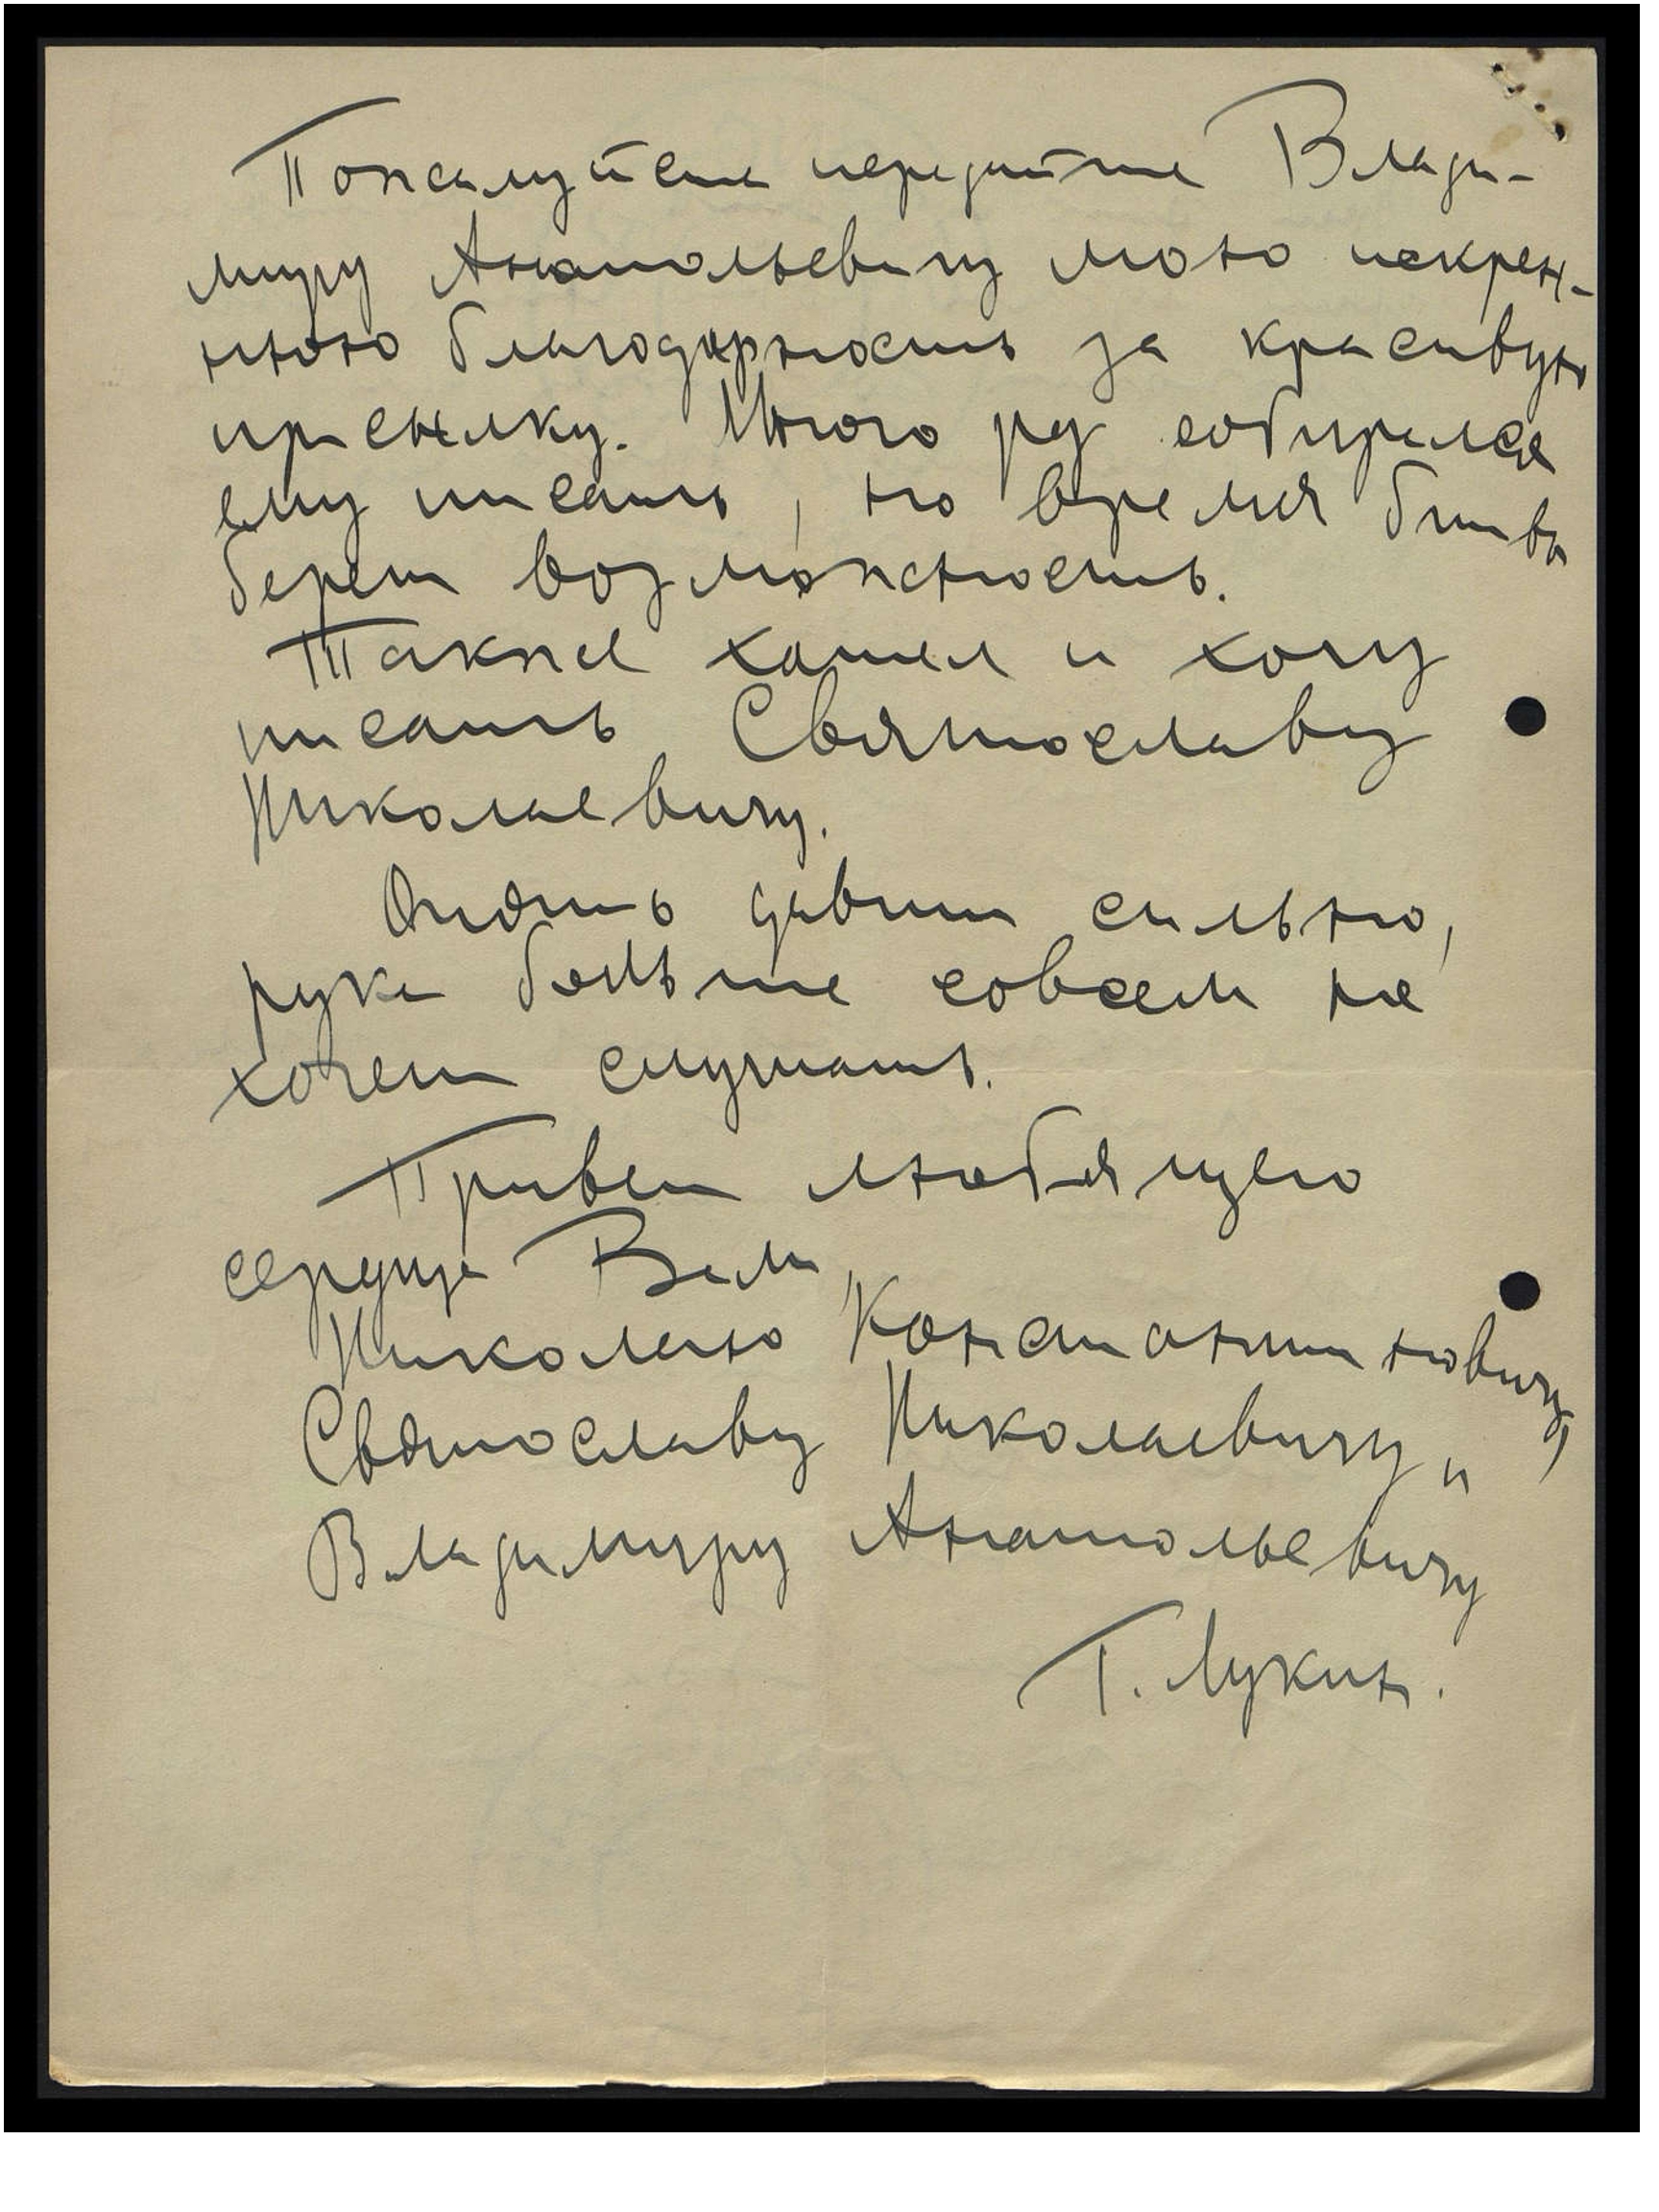 Пожалуйста передайте Влади-
миру Анатольевичу мою искрен-
нюю благодарность за красивую
присылку. Много раз собирался
ему писать, но время битва
берет возможность.
Также хотел и хочу
писать Святославу
Николаевичу.
Опять давит сильно,
рука больше совсем не
хочет слушать.
Привет любящего
сердца Вам,
Николаю Константиновичу,
Святославу Николаевичу и
Владимиру Анатольевичу
Г. Лукин.